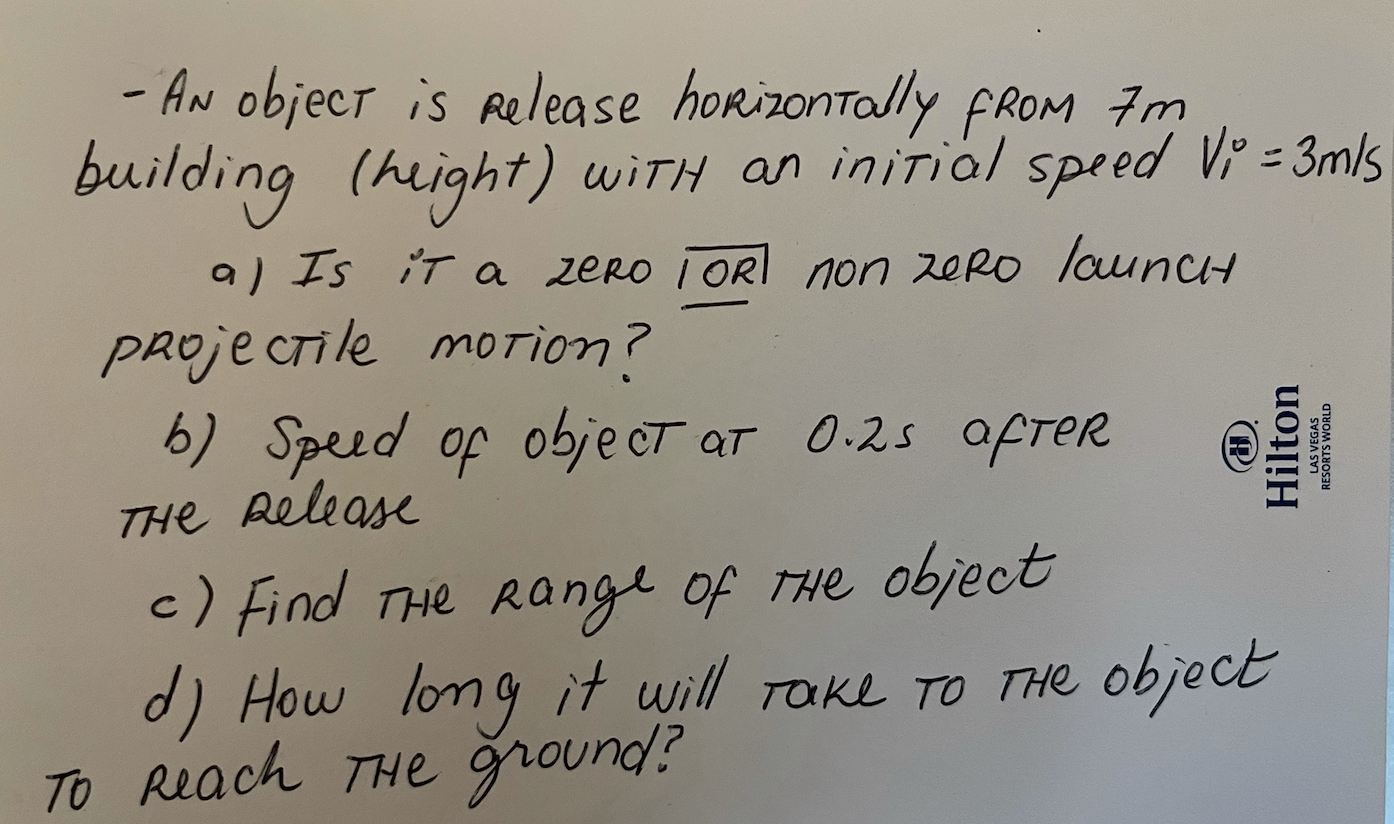 - An object is Release horizontally from 7m
building (height) with an initial speed Vi = 3m/s
a) Is it a zero OR non zero launch
projectile motion?
b) Speed of object at 0.2s after
the Release
c) Find the Range of the object
d) How long it will take to the object
to Reach the ground?
H
Hilton
LAS VEGAS
RESORTS WORLD